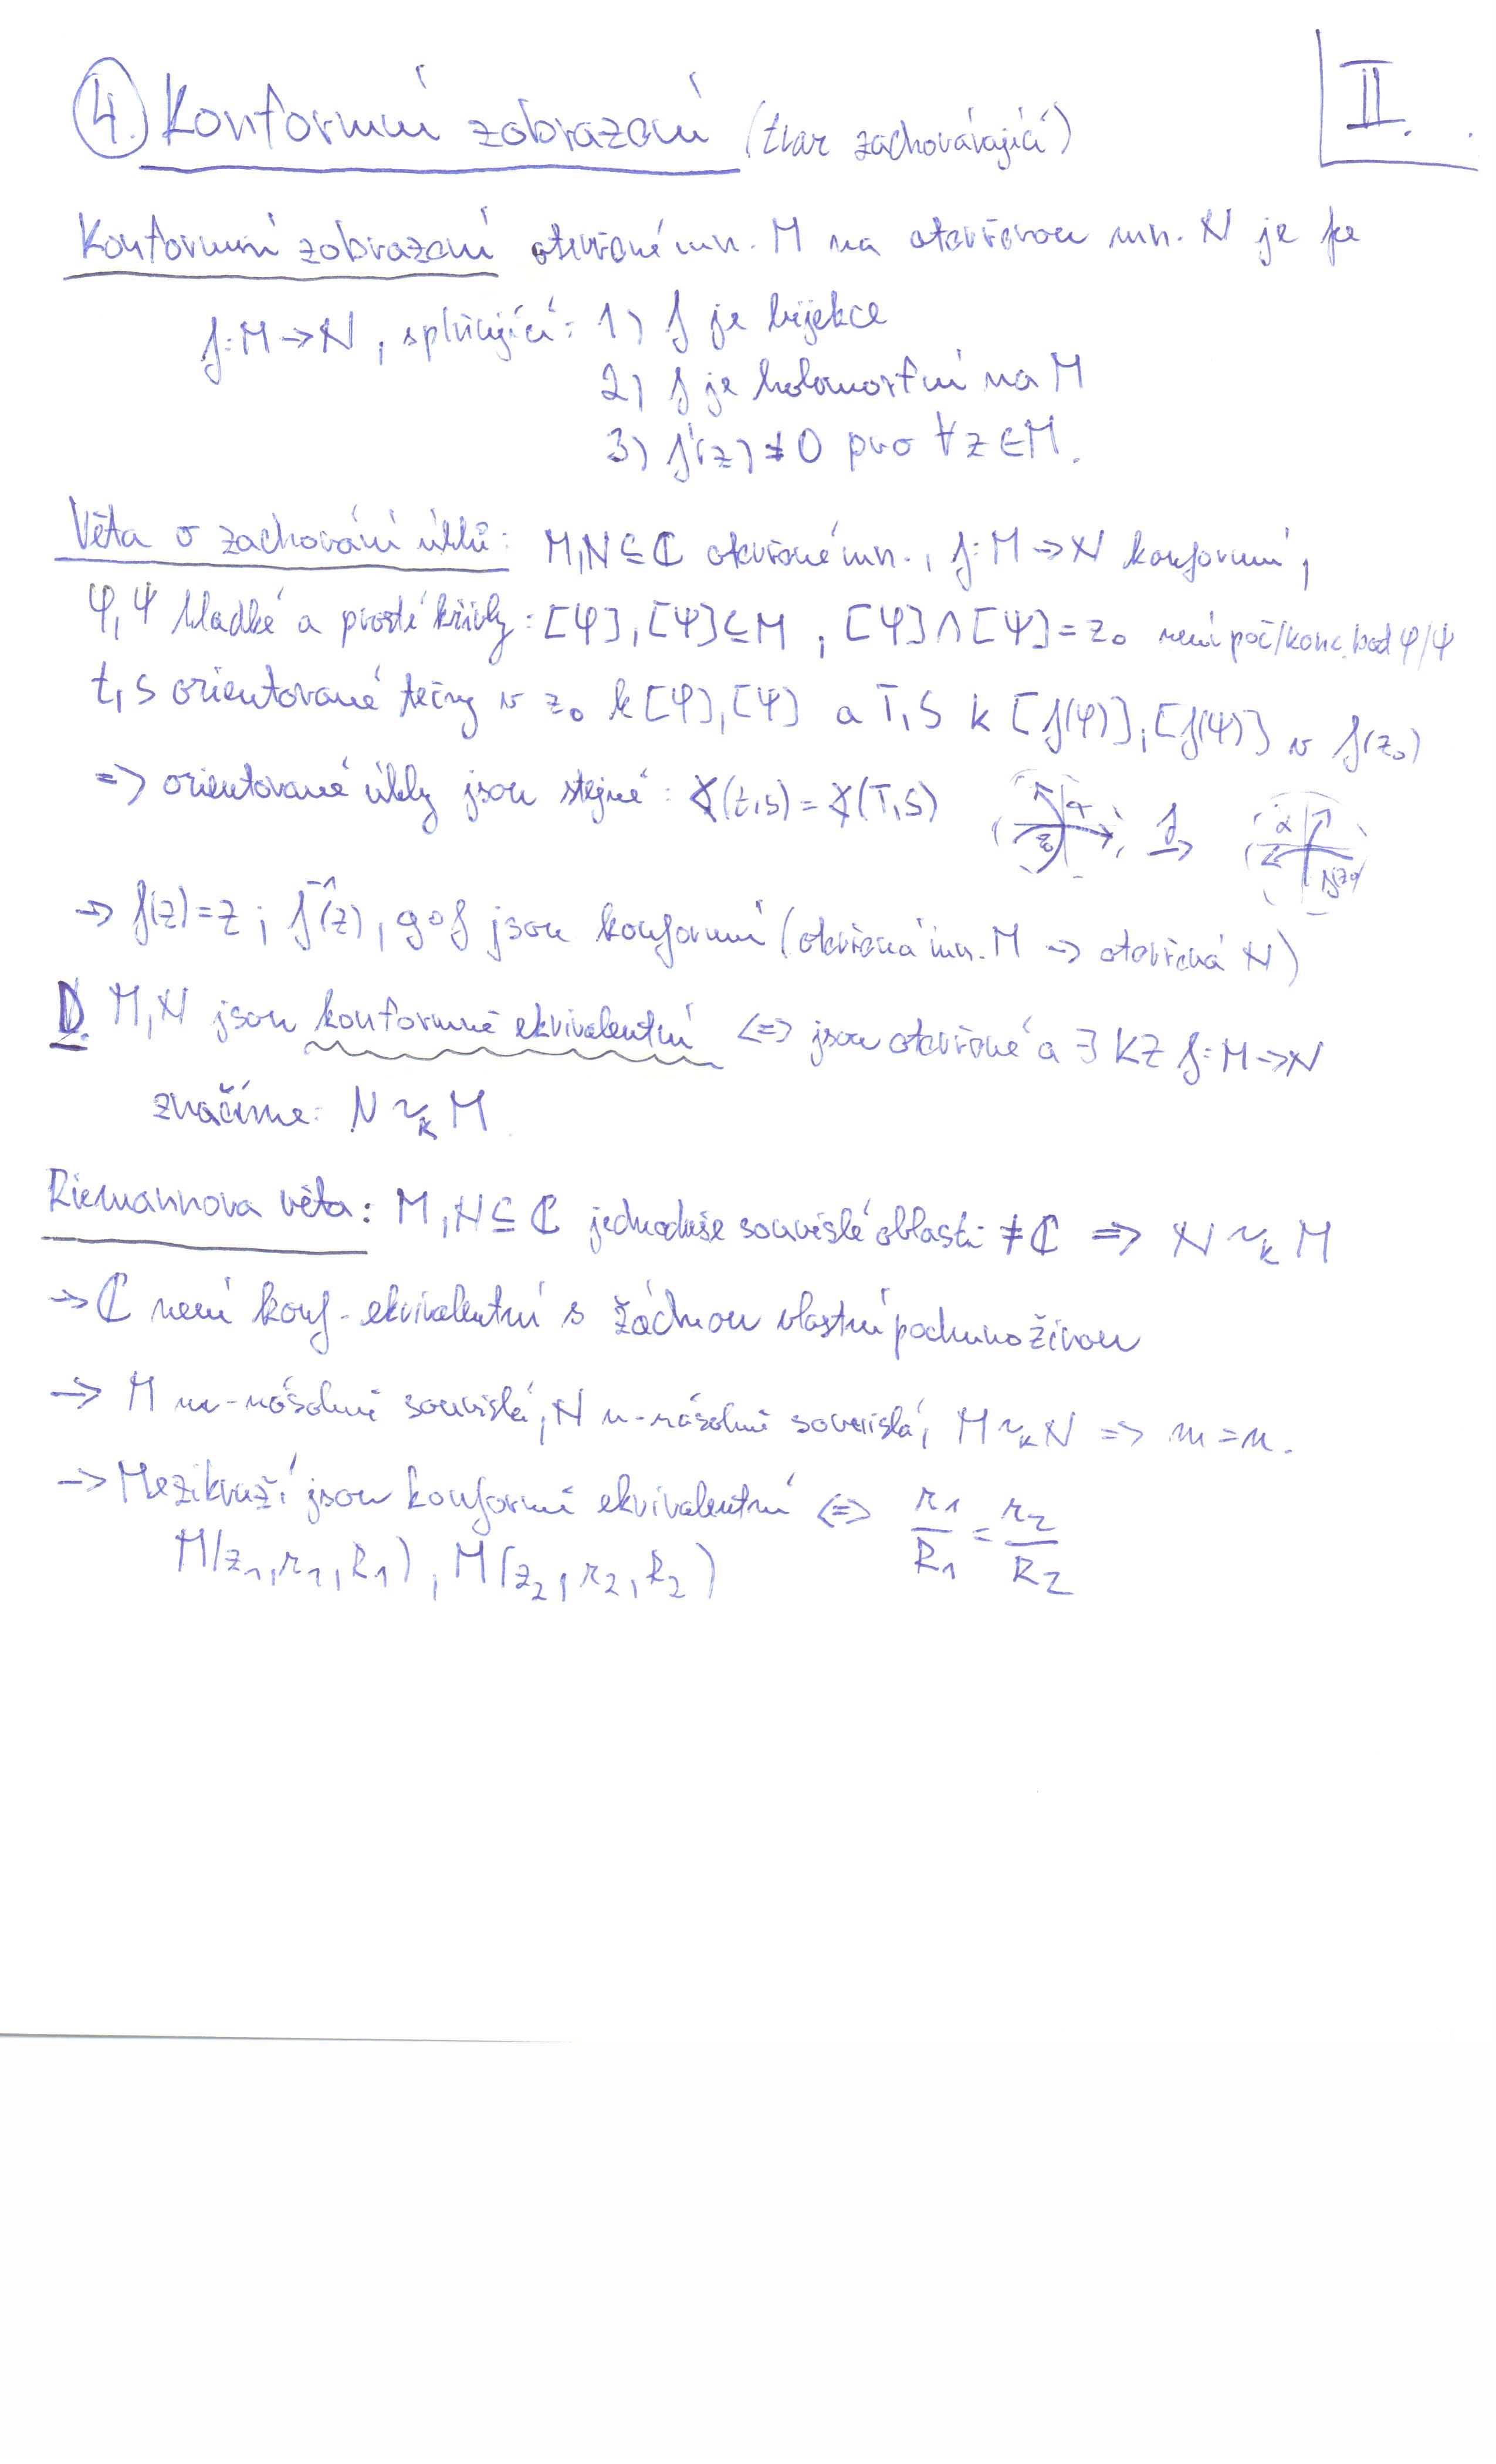 4. Konformní zobrazení (tvar zachovávající)
II.
Konformní zobrazení otevřené mn. M na otevřenou mn. N je fce
f: M → N, splňující: 1) f je bijekce
2) f je holomorfní na M
3) f'(z) ≠ 0 pro ∀ z ∈ M.
Věta o zachování úhlů: M, N ⊆ ℂ otevřené mn., f: M → N konformní,
φ, ψ hladké a prosté křivky: [φ], [ψ] ⊆ M, [φ] ∩ [ψ] = z₀ není poč/konc. bod φ/ψ
t, s orientované tečny v z₀ k [φ], [ψ] a T, S k [f(φ)], [f(ψ)] v f(z₀)
⇒ orientované úhly jsou stejné: ∢(t, s) = ∢(T, S) α z₀ f → α f(z₀)
→ f(z) = z; f⁻¹(z), g∘f jsou konformní (otevřená mn. M → otevřená N)
D. M, N jsou konformně ekvivalentní ⇔ jsou otevřené a ∃ KZ f: M → N
značíme: N ~ₖ M
Riemannova věta: M, N ⊆ ℂ jednoduše souvislé oblasti ≠ ℂ ⇒ N ~ₖ M
→ ℂ není konf. ekvivalentní s žádnou vlastní podmnožinou
→ M m-násobně souvislá, N n-násobně souvislá, M ~ₖ N ⇒ m = n.
→ Mezikruží jsou konformě ekvivalentní ⇔ r₁/R₁ = r₂/R₂
M(z₁, r₁, R₁), M(z₂, r₂, R₂)